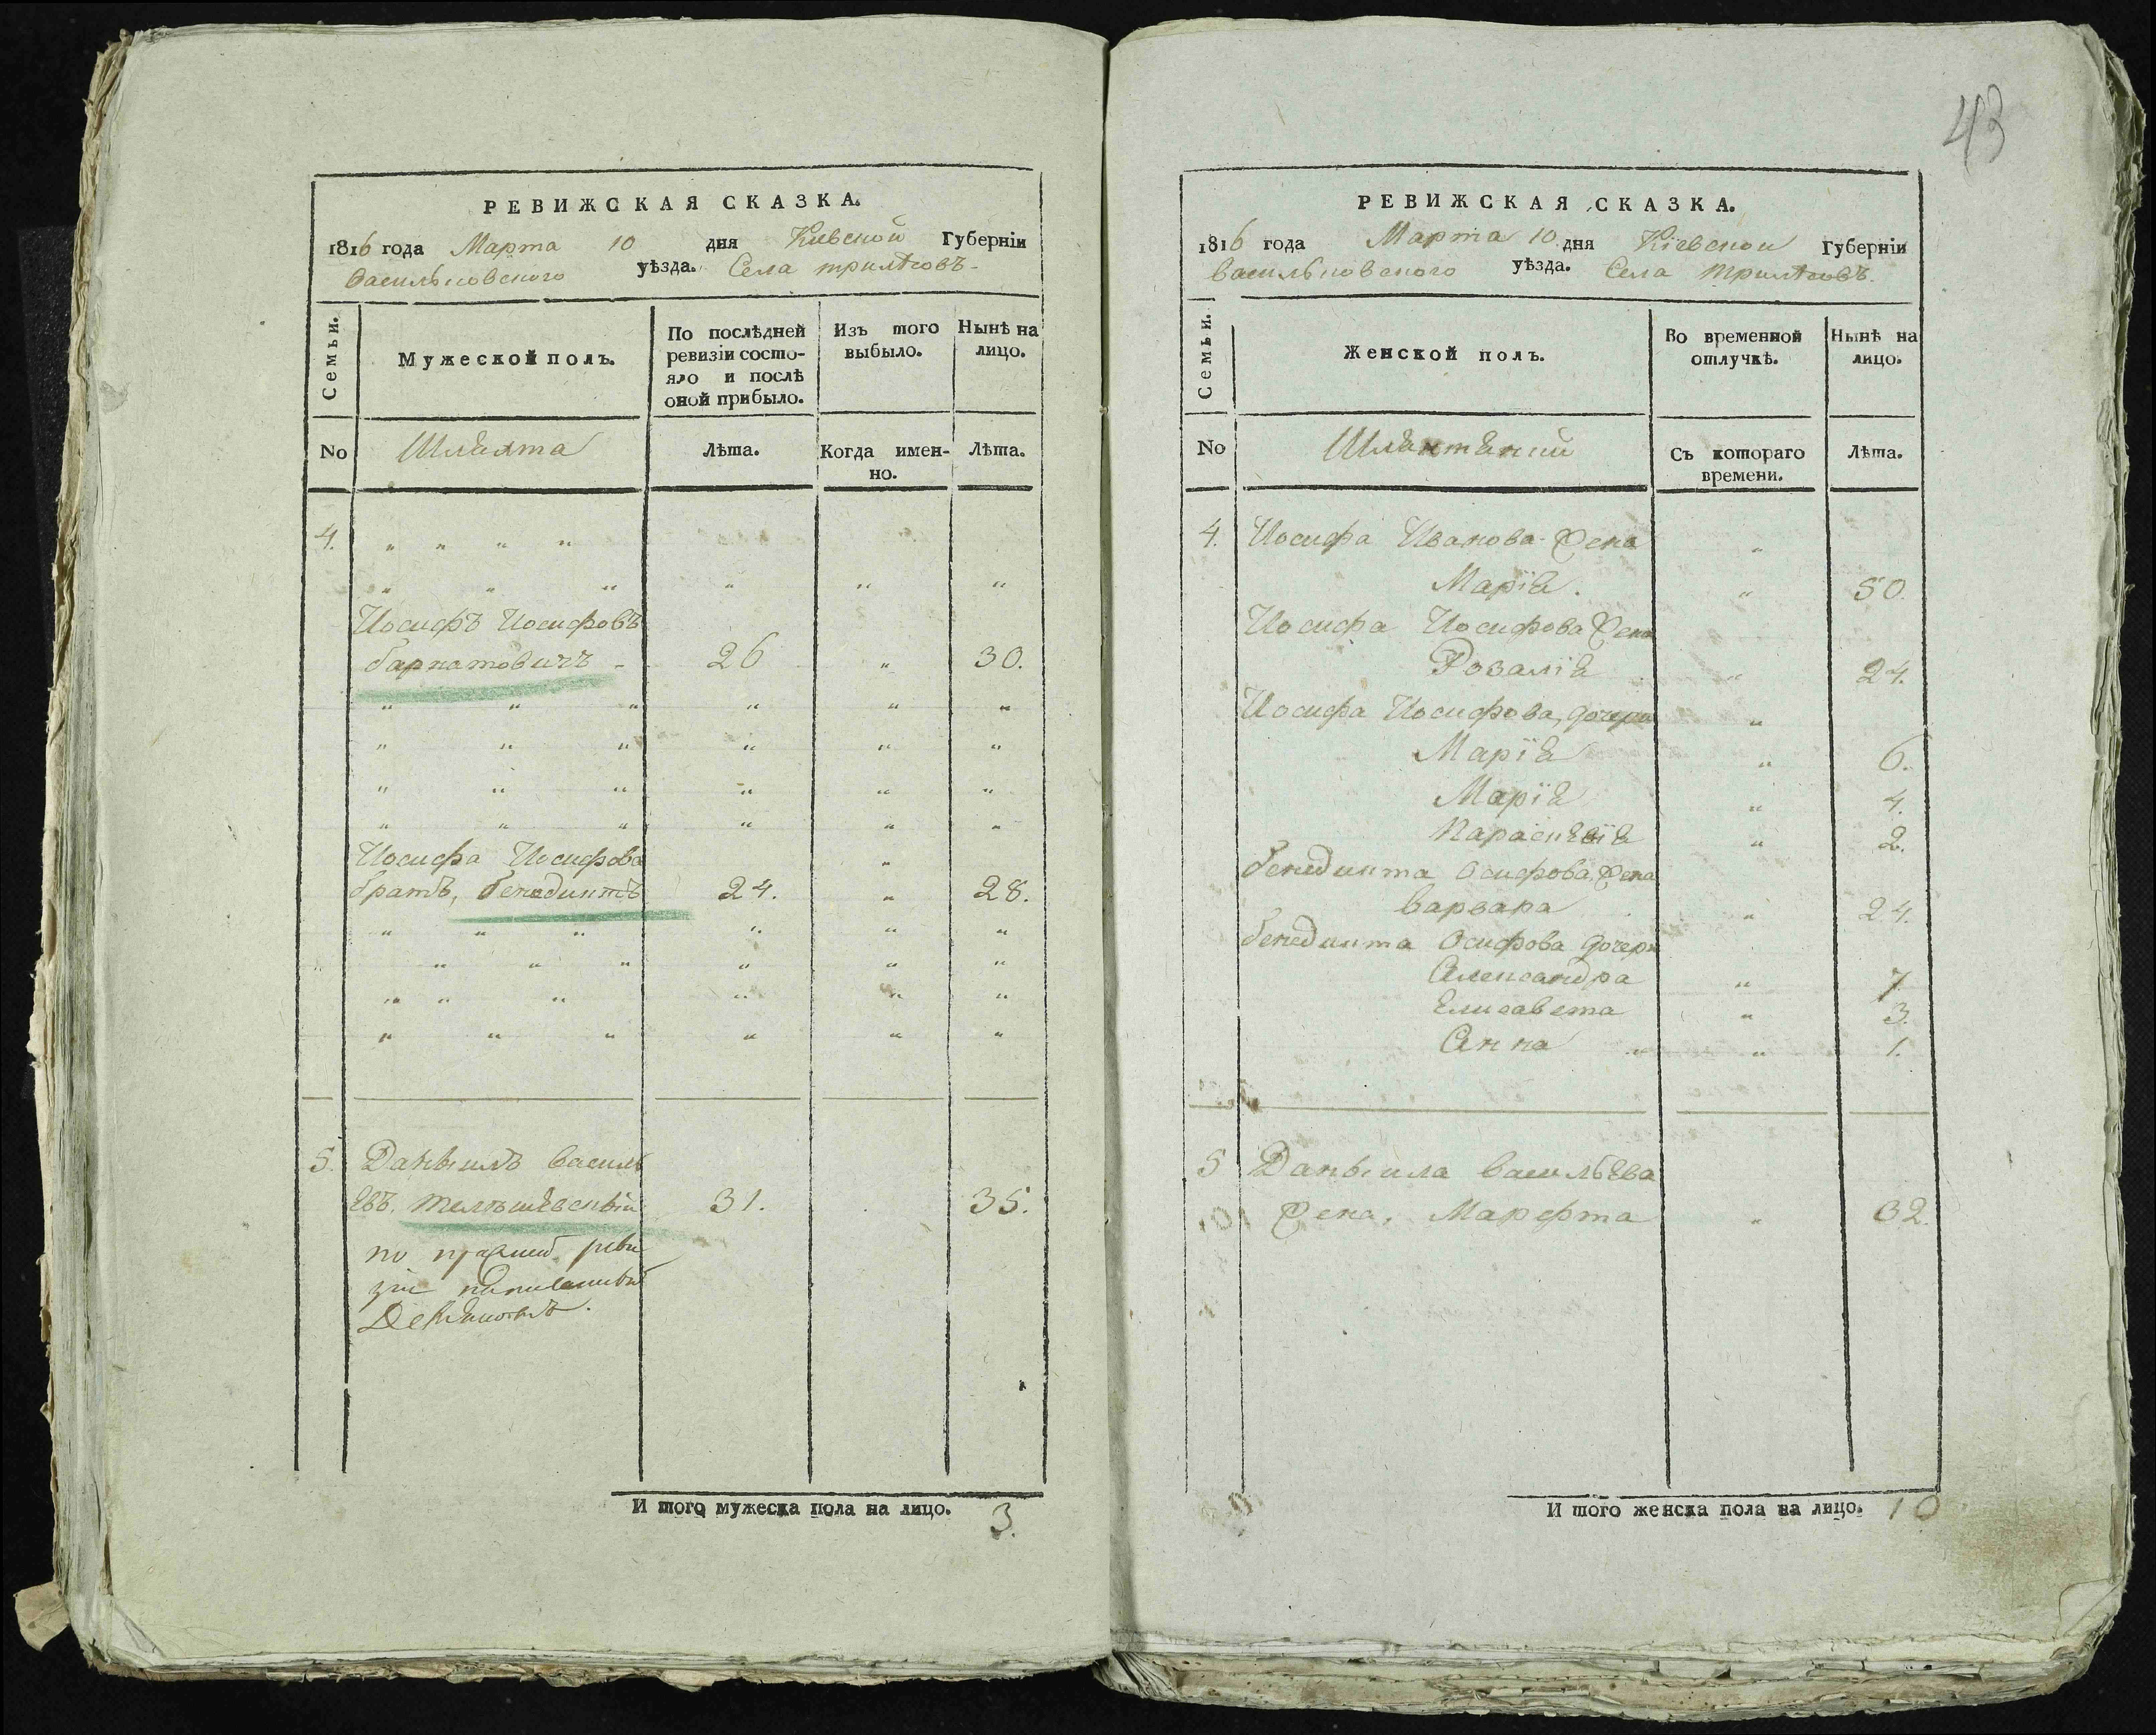 РЕВИЖСКАЯ СКАЗКА.
1816 года Марта 10 дня Киевской Губерніи
Васильковского уѣзда. Села трилѣсовъ
Семьи.
Мужеской полъ.
По послѣдней ревизіи состо-
яло и послѣ
оной прибыло.
Изъ того выбыло.
Нынѣ на лицо.
No
Шляхта
Лѣта.
Когда имен-
но.
Лѣта.
4. " " " "
" " " " " "
Иосифъ Иосифовъ
барнатовичъ 26 " 30.
" " " " " "
" " " " " "
" " " " " "
" " " " " "
Иосифа Иосифова "
братъ, бенедиктъ 24. " 28.
" " " " " "
" " " " " "
" " " " " "
" " " " " "
5. Даныилъ василь
евъ, 31. 35.
по прежней реви
зіи написанный
И того мужеска пола на лицо. 3.
43
РЕВИЖСКАЯ СКАЗКА.
1816 года Марта 10 дня Кіевской Губерніи
Васильковского уѣзда. Села трилѣсовъ.
Семьи.
Женской полъ.
Во временной
отлучкѣ.
Нынѣ на
лицо.
No
Съ котораго
времени.
Лѣта.
4. Иосифа Иванова Жена "
Маріа. " 50.
Иосифа Иосифова Жена
Розаліа " 24.
Иосифа Иосифова, дочери "
Маріа " 6.
Маріа " 4.
Параскевіа " 2.
бенедикта Осифова, Жена
варвара " 24.
бенедикта Осифова дочери
Александра " 7
Елисавета " 3.
Анна " " 1.
5 Даныила васильева
Жена, Марефта " 32.
И того женска пола на лицо. 10